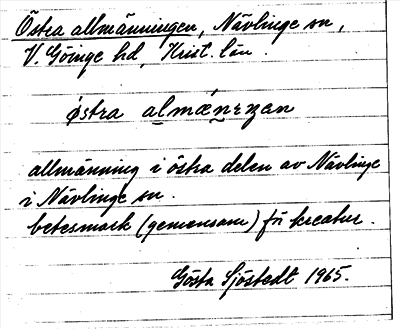 Östra allmänningen, Nävlinge sn,
V. Göinge hd, Krist. län.
östra
allmänning i östra delen av Nävlinge
i Nävlinge sn.
betesmark (gemensam) för kreatur.
Gösta Sjöstedt 1965.